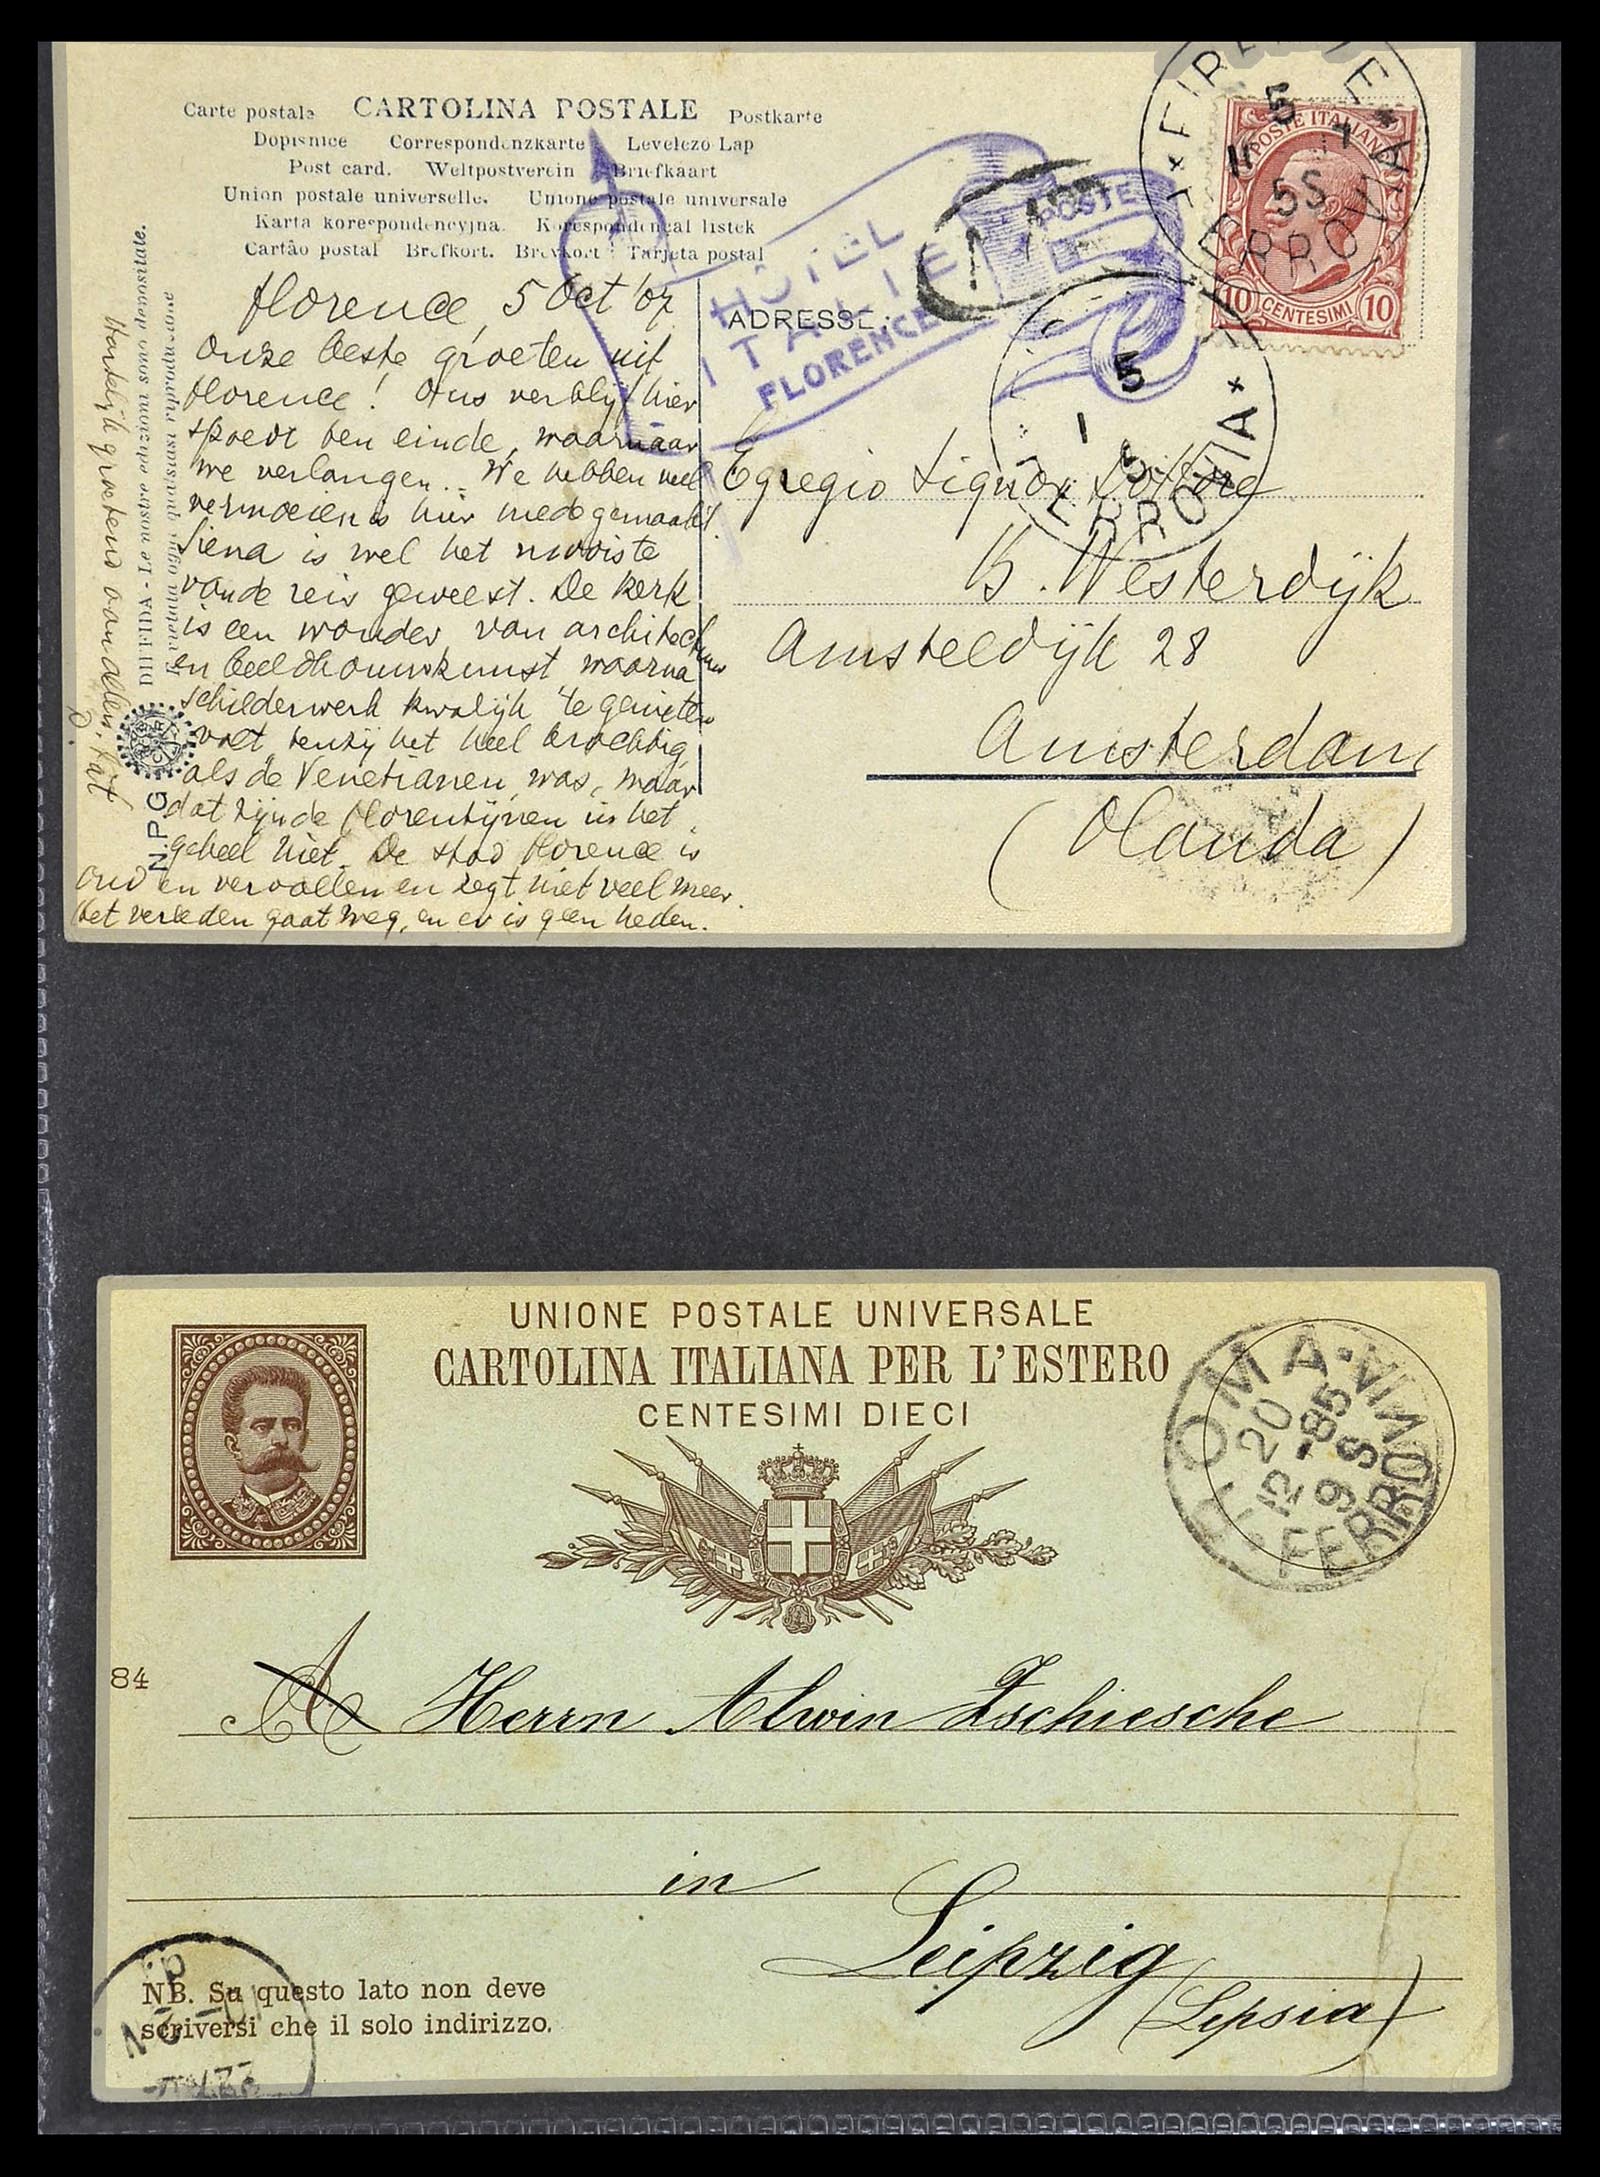 Carte postale CARTOLINA POSTALE Postkarte
Dopisnice Correspondenzkarte Levelezo Lap
Post card. Weltpostverein Briefkaart
Union postale universelle. Unione postale universale
Karta korespondencyjna. Korespondencal listek
Cartão postal Brefkort. Brevkort Tarjeta postal
Florence, 5 Oct '07
Onze beste groeten uit
Florence! Ons verblijf hier
spoedt ten einde, waarnaar
we verlangen. We hebben veel
vermoeienis hier medegemaakt.
Siena is wel het mooiste
van de reis geweest. De kerk
is een wonder van architectuur
en beeldhouwkunst, waarna
schilderwerk kwalijk te genieten
valt, tenzij het heel krachtig
als de Venetianen was, maar
dat zijn de Florentijnen in het
geheel niet. De stad Florence is
oud en vervallen en zegt niet veel meer.
Het verleden gaat weg, en er is geen heden.
Hartelijk groetend van allen, Kart
DIFFIDA - Le nostre edizioni sono depositate.
È vietata ogni qualsiasi riproduzione
N.P.G
HOTEL
ITALIE
FLORENCE
POSTE
ADRESSE:
FIRENZE
5
FERROVIA
POSTE ITALIANE
10 CENTESIMI 10
5
FERROVIA
Egregio Signor Dottore
B. Westerdijk
Amsteldijk 28
Amsterdam
(Olanda)
UNIONE POSTALE UNIVERSALE
CARTOLINA ITALIANA PER L'ESTERO
CENTESIMI DIECI
ROMA
20
12-85
9 S
FERROVIA
84
A Herrn Alwin Zschiesche
in
Leipzig
(Lipsia)
NB. Su questo lato non deve
scriversi che il solo indirizzo.